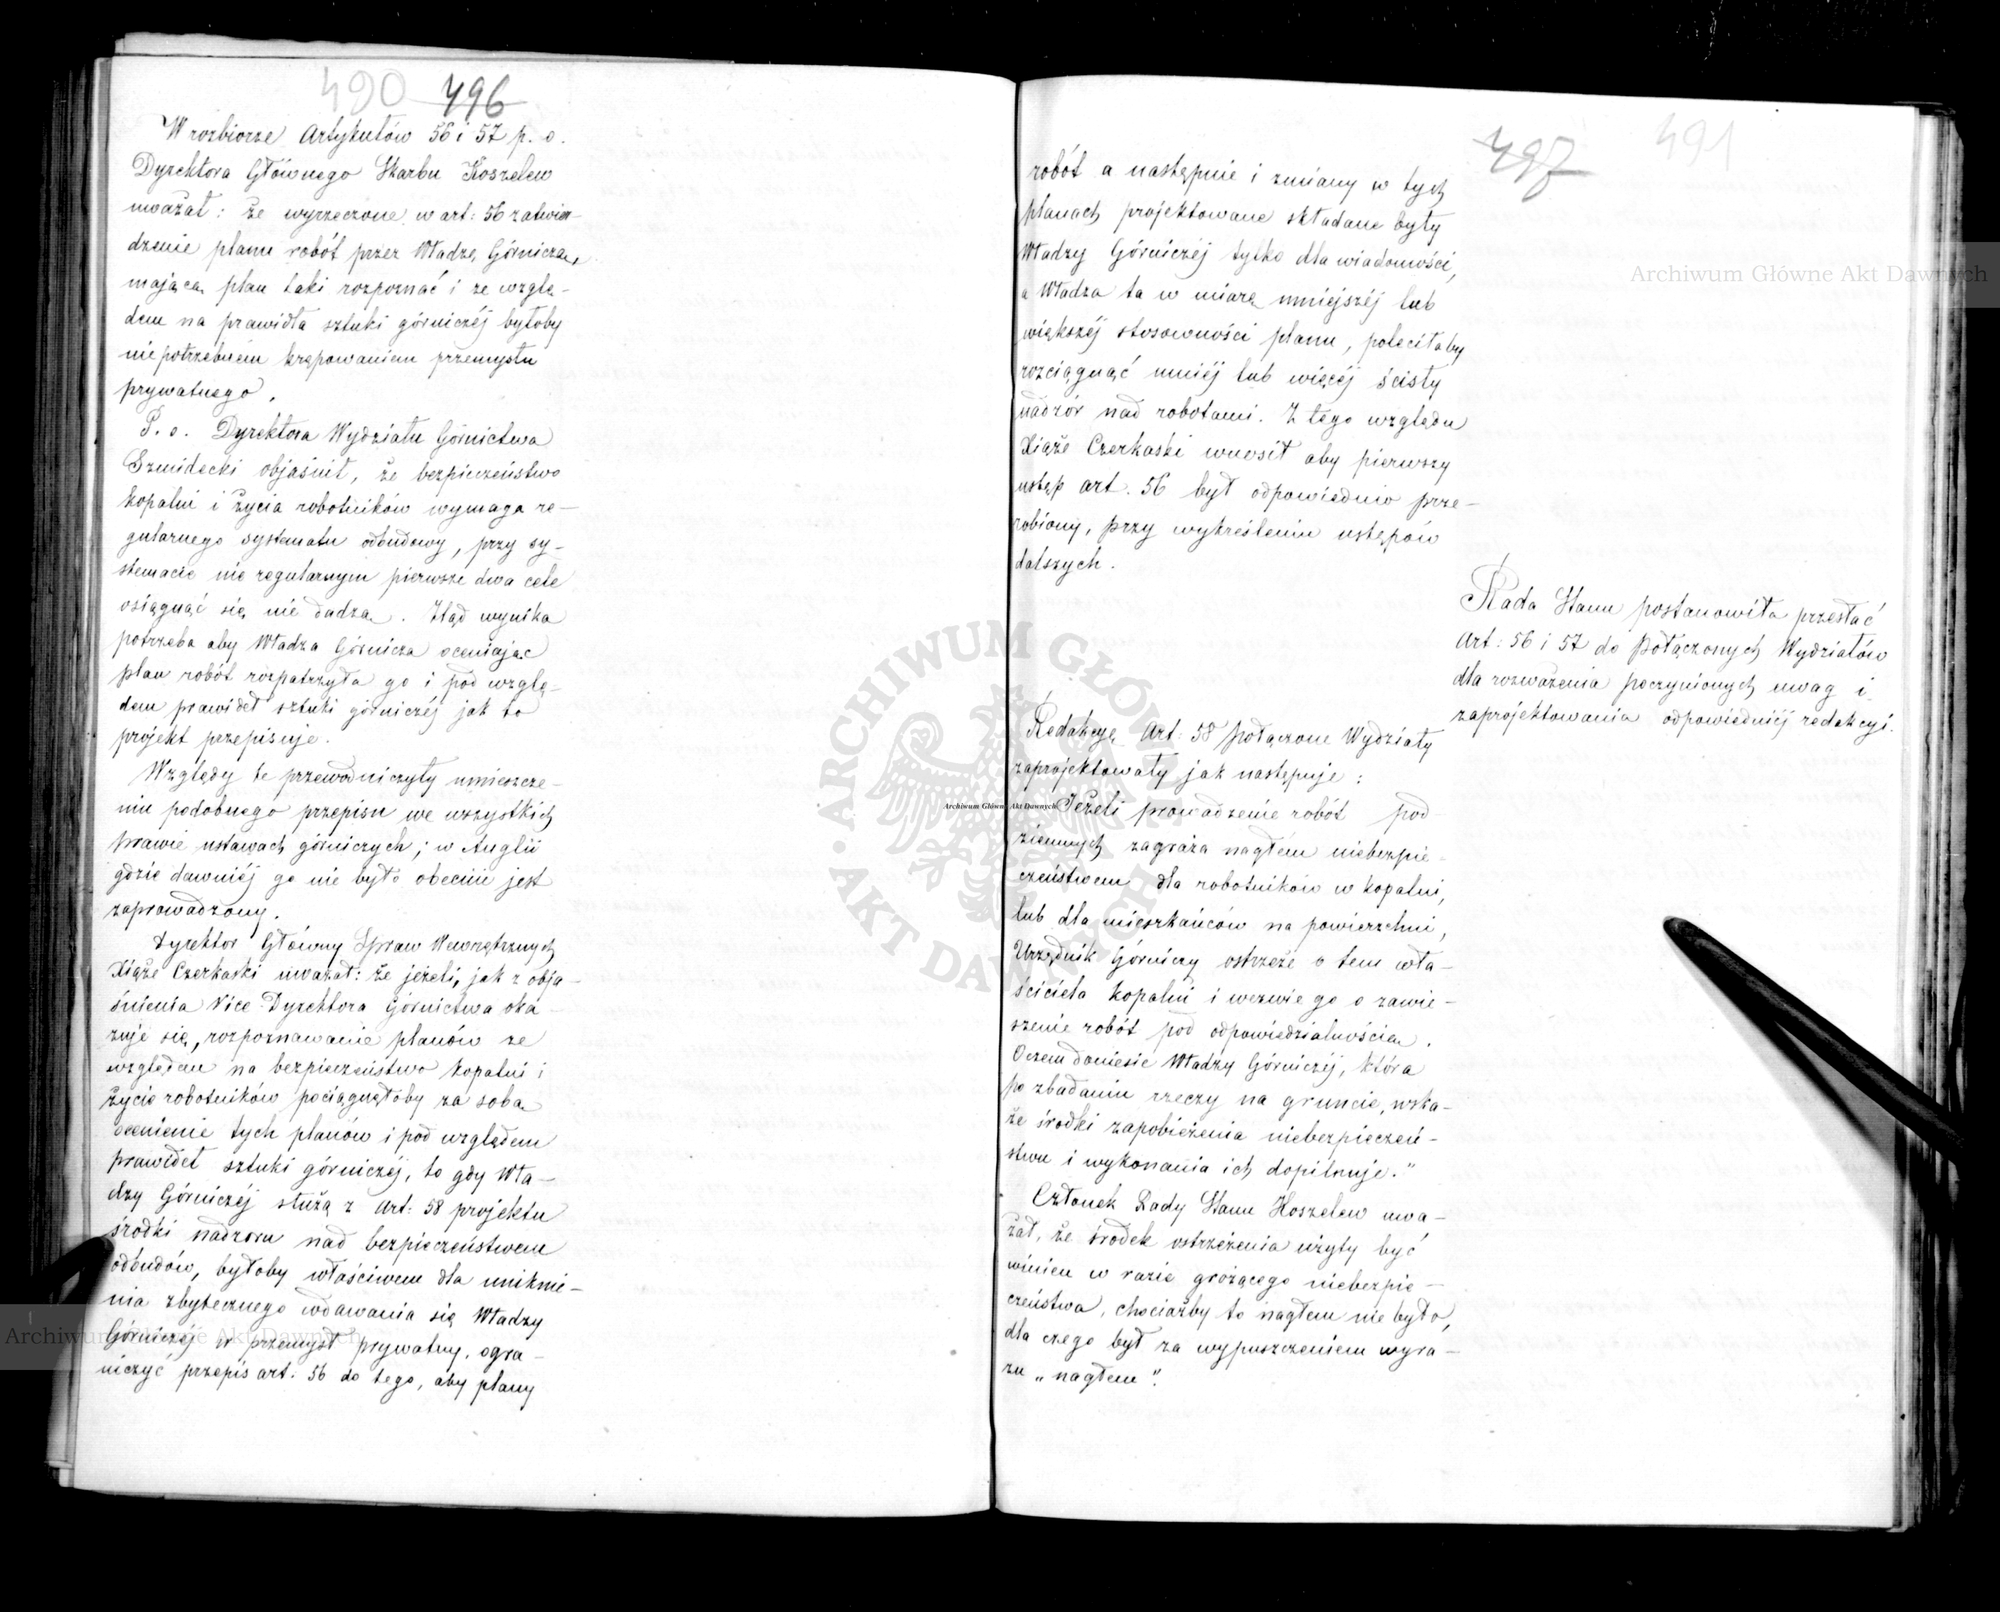 490 496
W rozbiorze Artykułów 56 i 57 p. o.
Dyrektora Głównego Skarbu Koszelew
uważał: że wyrzeczone w art: 56 zatwier-
dzenie planu robót przez Władzę Górniczą,
mającą plan taki rozpoznać i ze wzglę-
dem na prawidła sztuki górniczéj byłoby
niepotrzebném krępowaniem przemysłu
prywatnego.
P. o. Dyrektora Wydziału Górnictwa
Szmidecki objaśnił, że bezpieczeństwo
kopalni i życia robotników wymaga re-
gularnego systematu odbudowy, przy sy-
stemacie nie regularnym pierwsze dwa cele
osiągnąć się nie dadzą. Ztąd wynika
potrzeba aby Władza Górnicza oceniając
plan robót rozpatrzyła go i pod wzglę-
dem prawideł sztuki górniczéj jak to
projekt przepisuje.
Względy te przewodniczyły umieszcze-
niu podobnego przepisu we wszystkich
prawie ustawach górniczych; w Anglii
gdzie dawniéj go nie było obecnie jest
zaprowadzony.
Dyrektor Główny Spraw Wewnętrznych
Xiąże Czerkaski uważał: że jeżeli, jak z obja-
śnienia Vice Dyrektora Górnictwa oka-
zuje się, rozpoznawanie planów ze
względem na bezpieczeństwo kopalni i
życie robotników pociągnęłoby za sobą
ocenienie tych planów i pod względem
prawideł sztuki górniczéj, to gdy Wła-
dzy Górniczéj służą z Art: 58 projektu
środki nadzoru nad bezpieczeństwem
odbudów, byłoby właściwem dla uniknie-
nia zbytecznego wdawania się Władzy
Górniczéj w przemysł prywatny, ogra-
niczyć przepis art: 56 do tego, aby plany
497 491
robót a następnie i zmiany w tych
planach projektowane składane były
Władzy Górniczéj tylko dla wiadomości,
a Władza ta w miarę mniejszéj lub
większéj stosowności planu, poleciłaby
rozciągnąć mniéj lub więcéj ścisły
nadzór nad robotami. Z tego względu
Xiąże Czerkaski wnosił aby pierwszy
ustęp art. 56 był odpowiednio prze-
robiony, przy wykreśleniu ustępów
dalszych.
Rada Stanu postanowiła przesłać
Art: 56 i 57 do Połączonych Wydziałów
dla rozważenia poczynionych uwag i
zaprojektowania odpowiedniéj redakcyi.
Redakcyę Art: 58 połączone Wydziały
zaprojektowały jak następuje:
Jeżeli prowadzenie robót pod-
ziemnych zagraża nagłém niebezpie-
czeństwem dla robotników w kopalni,
lub dla mieszkańców na powierzchni,
Urzędnik Górniczy ostrzeże o tem wła-
ściciela kopalni i wezwie go o zawie-
szenie robót pod odpowiedzialnością.
O czem doniesie Władzy Górniczéj, która
po zbadaniu rzeczy na gruncie, wska-
że środki zapobieżenia niebezpieczeń-
stwu i wykonania ich dopilnuje."
Członek Rady Stanu Koszelew uwa-
żał, że środek ostrzeżenia użyty być
winien w razie grożącego niebezpie-
czeństwa, chociażby to nagłem nie było,
dla czego był za wypuszczeniem wyra-
zu „nagłem".
Archiwum Główne Akt Dawnych
Archiwum Główne Akt Dawnych
Archiwum Główne Akt Dawnych
ARCHIWUM GŁÓWNE AKT DAWNYCH